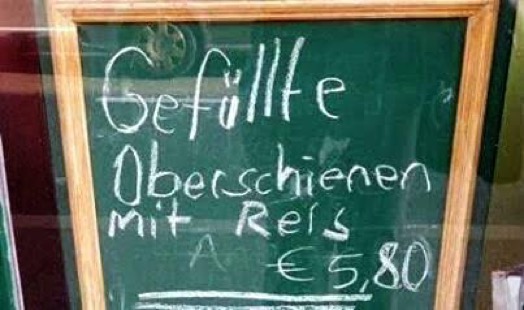 Gefüllte
Oberschienen
mit Reis
€ 5,80